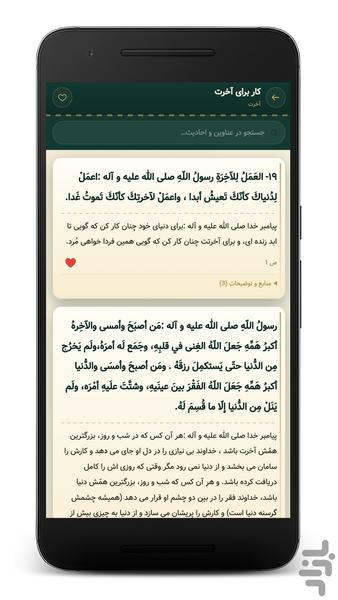 کار برای آخرت
آخرت
جستجو در عناوین و احادیث...
۱۹- العَمَلُ لِلآخِرَةِ رسولُ اللّهِ صلى الله عليه و آله :اعمَلْ
لِدُنياكَ كأنّكَ تَعيشُ أبدا ، واعمَلْ لآخرتِكَ كأنّكَ تَموتُ غَدا.
پيامبر خدا صلى الله عليه و آله :براى دنياى خود چنان كار كن كه گويى تا
ابد زنده اى، و براى آخرتت چنان كار كن كه گويى همين فردا خواهى مُرد.
ص 1
منابع و توضیحات (3)
رسولُ اللّهِ صلى الله عليه و آله :مَن أصبَحَ وأمسى والآخِرةُ
أكبرُ هَمِّهِ جَعلَ اللّهُ الغِنى في قلبِهِ، وجَمَع لَه أمرَهُ،ولَم يَخرُجْ
مِن الدُّنيا حتّى يَستكمِلَ رزقَهُ . ومَن أصبحَ وأمسَى والدُّنيا
أكبرُ هَمِّهِ جَعلَ اللّهُ الفَقْرَ بينَ عينَيهِ، وشتَّتَ علَيهِ أمْرَه، ولَم
يَنَلْ مِن الدُّنيا إلّا ما قُسِمَ لَهُ.
پيامبر خدا صلى الله عليه و آله :هر آن كس كه در شب و روز، بزرگترين
همّش آخرت باشد ، خداوند بى نيازى را در دل او جاى مى دهد و كارش را
سامان مى بخشد و از دنيا نمى رود مگر وقتى كه روزى اش را كامل
دريافت كرده باشد. و هر آن كس كه شب و روز، بزرگترين همّش دنيا
باشد، خداوند فقر را در بين دو چشم او قرار مى دهد (هميشه چشمش
گرسنه دنيا است) و كارش را پريشان مى سازد و از دنيا به چيزى بيش از
بازار